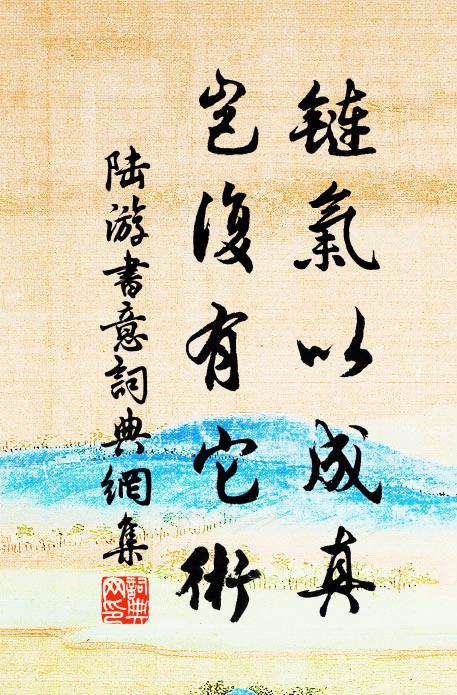 鏈氣以成真
豈復有它術
陸游書意詞典網集
詞典网印